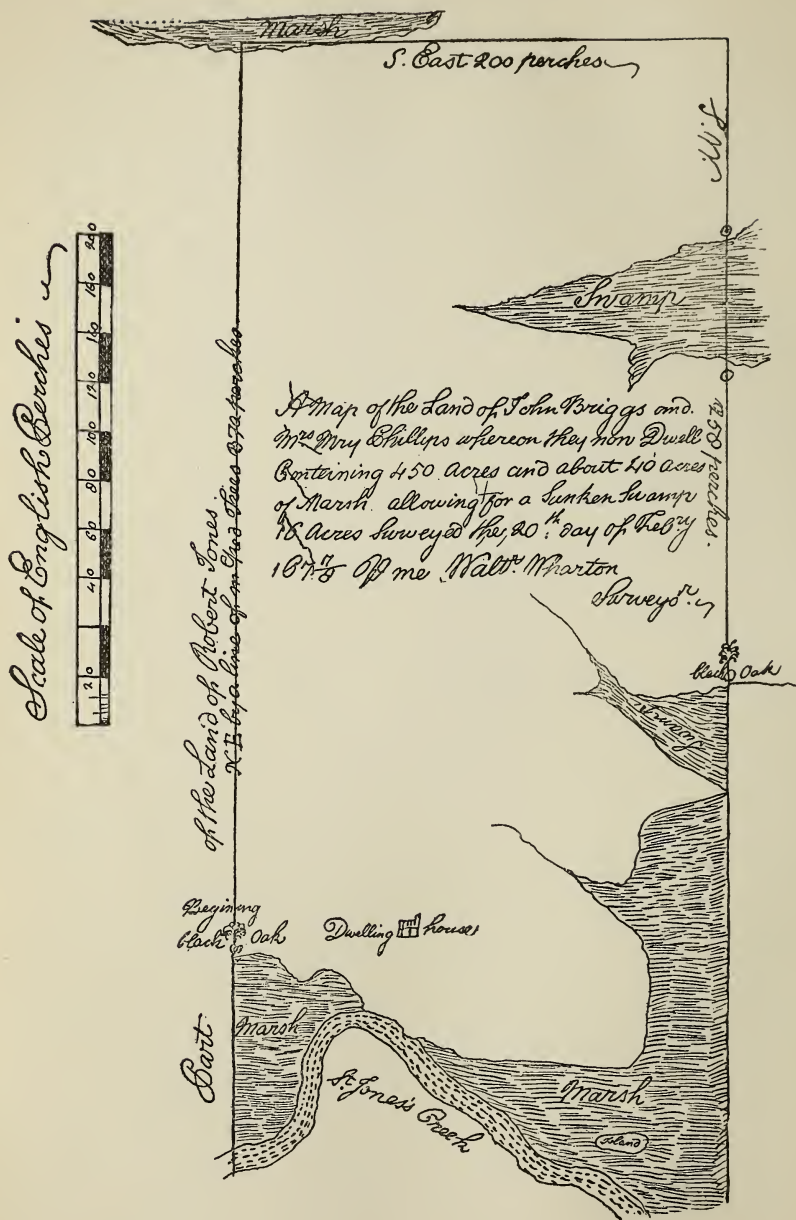 Marsh
S. East 200 perches
S.W.
250 perches.
Swamp
Scale of English Perches
20 40 60 80 100 120 140 160 200
A Map of the Land of John Briggs and
Mrs Mry Phillips whereon they now Dwell
Conteining 450 Acres and about 40 acres
of Marsh allowing for a Sunken Swamp
16 Acres Surveyed the 20th day of Febry
167 7/8 P me Waltr. Wharton
Surveyor.
Part of the Land of Robert Jones.
N E by a line of mrked trees perches
black Oak
Swamp
Begining
black Oak
Dwelling house
Marsh
St. Jones's Creek
Marsh
Island